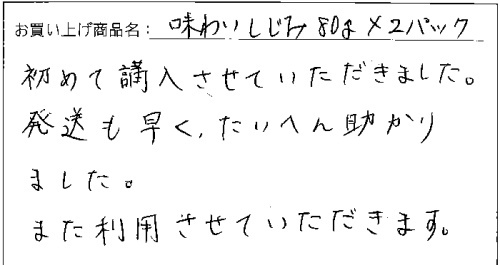 お買い上げ商品名：味わいしじみ80g×2パック
初めて講入させていただきました。
発送も早く、たいへん助かり
ました。
また利用させていただきます。